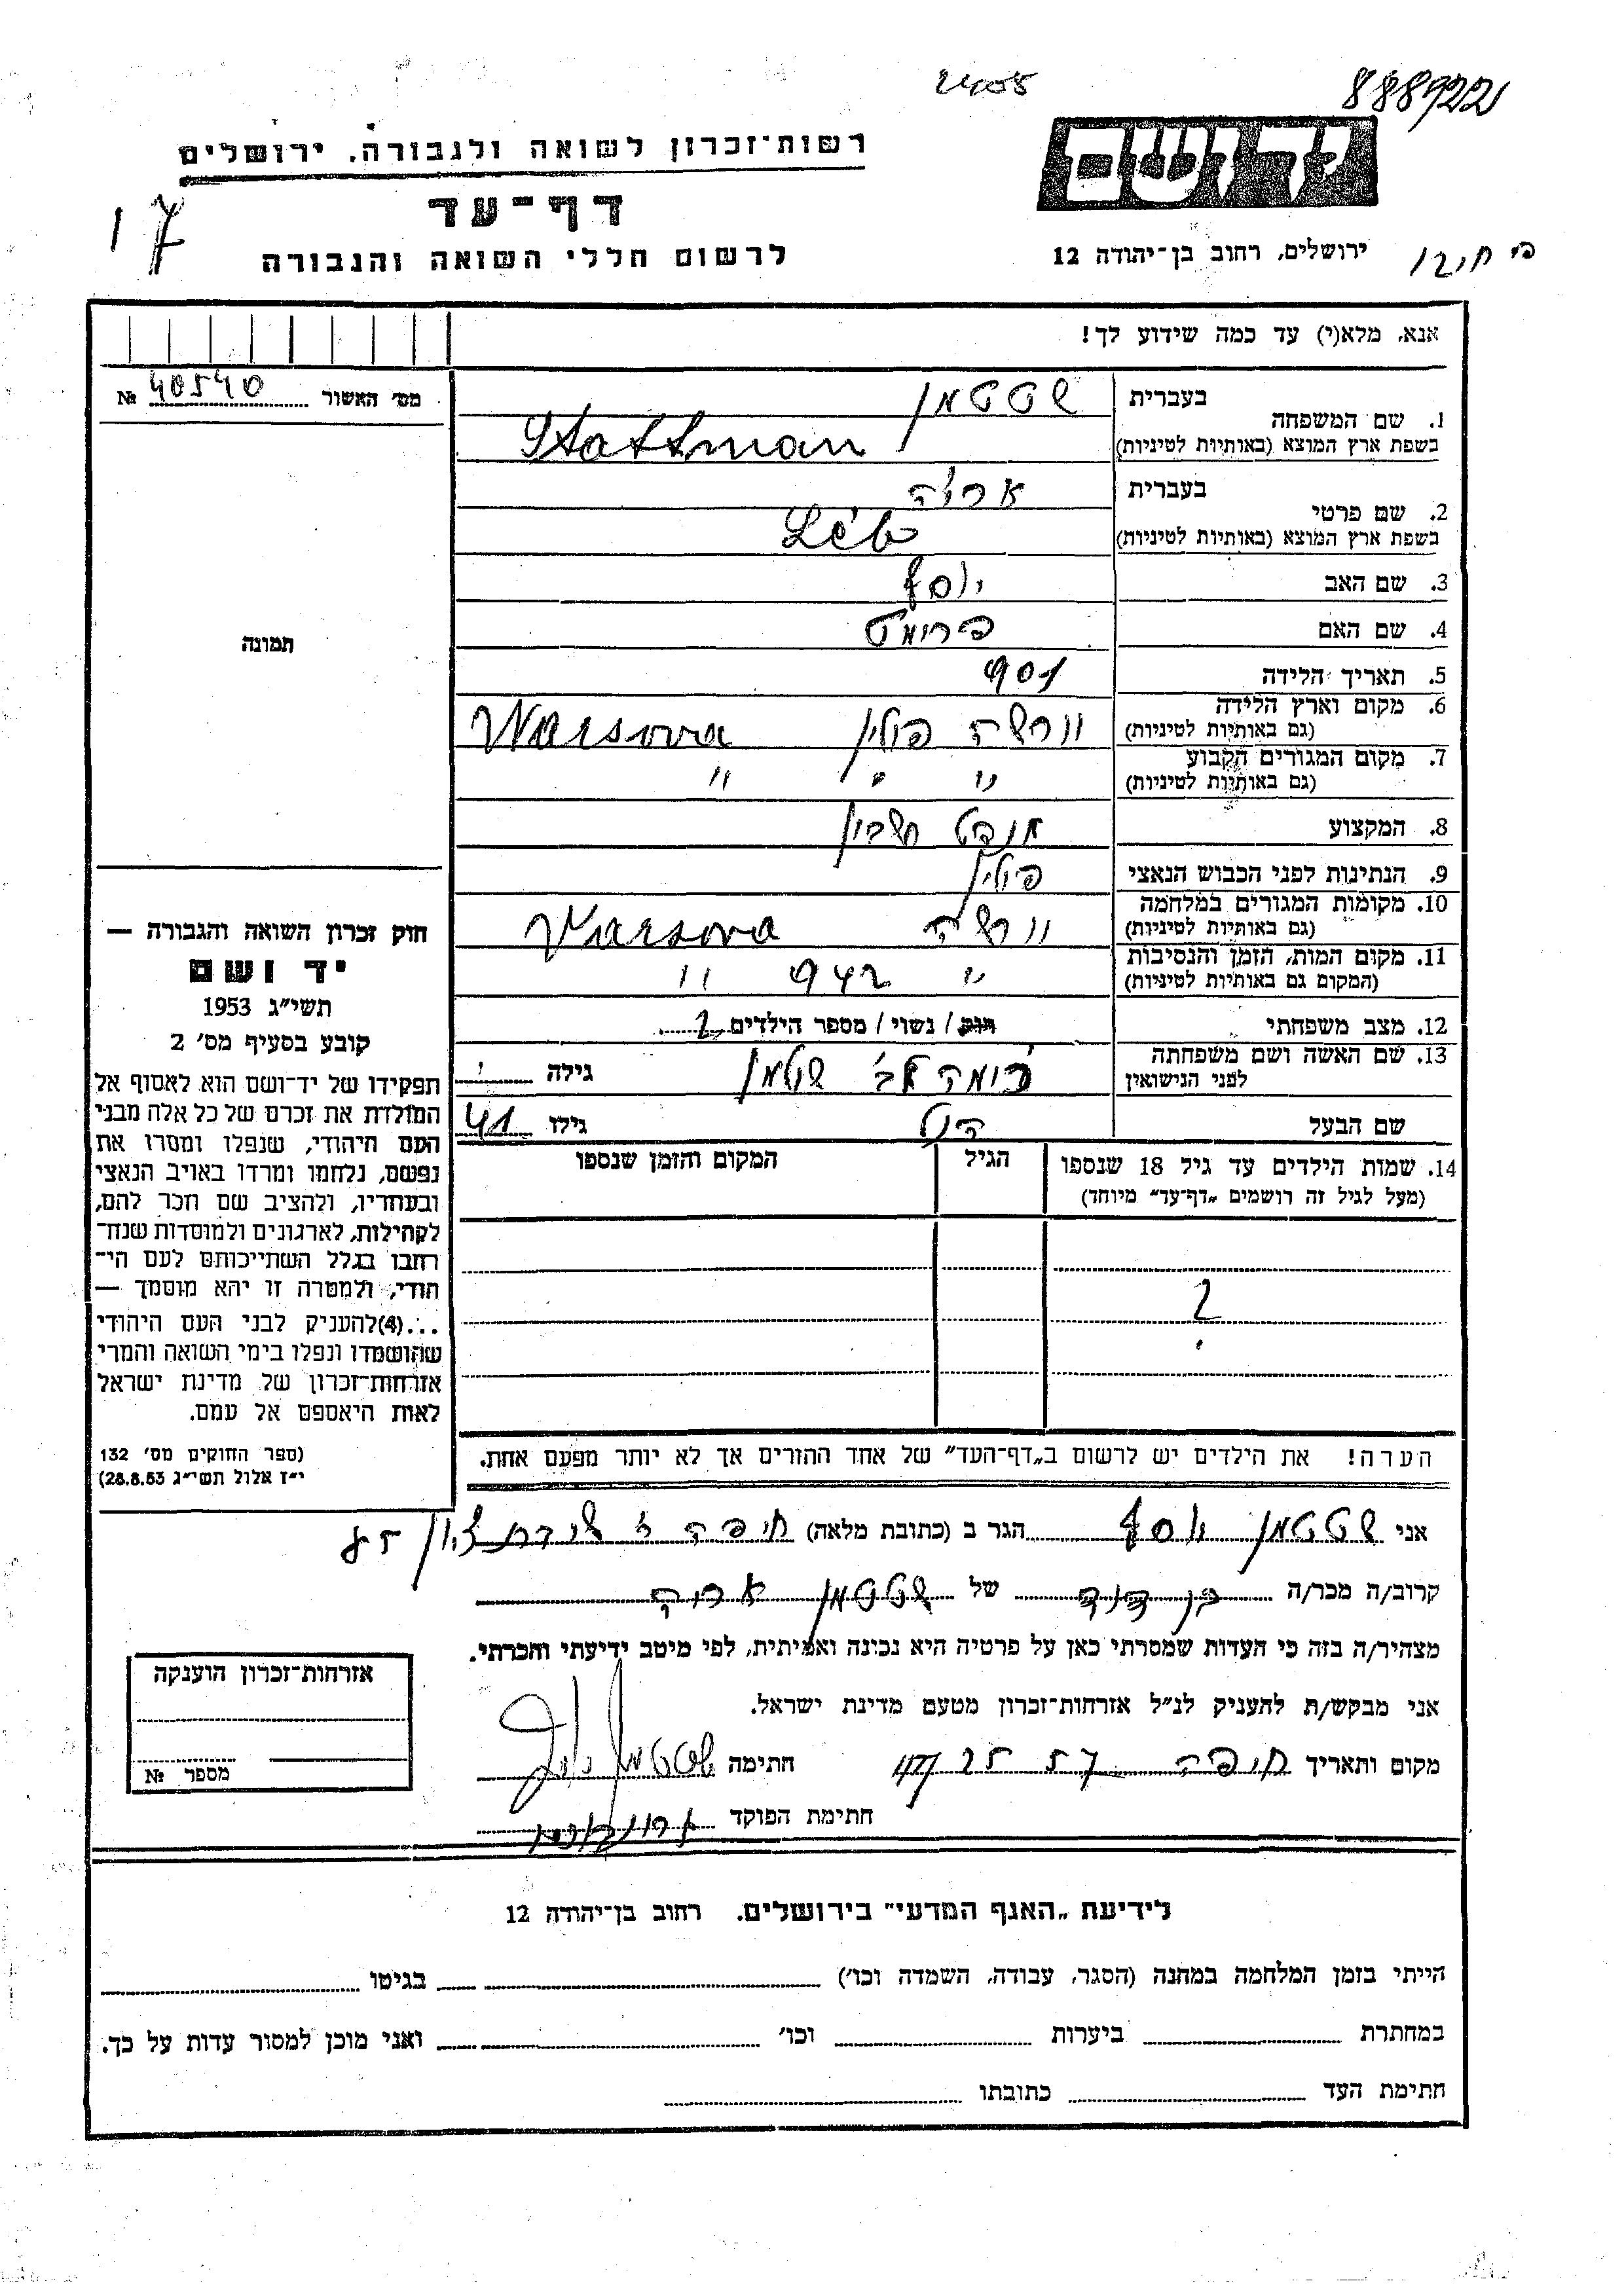 2408
888922
יד ושם
רשות־זכרון לשואה ולגבורה, ירושלים
דף־עד
לרשום חללי השואה והגבורה
17
ירושלים, רחוב בן־יהודה 12
אנא, מלא(י) עד כמה שידוע לך!
מס׳ האשור № 40540
תמונה
1. שם המשפחה
בעברית שטטמן
בשפת ארץ המוצא (באותיות לטיניות) Stattman
2. שם פרטי
בעברית אריה
בשפת ארץ המוצא (באותיות לטיניות) Leib
3. שם האב יוסף
4. שם האם פרומט
5. תאריך הלידה 901
6. מקום וארץ הלידה (גם באותיות לטיניות) וורשה פולין Warsowa
7. מקום המגורים הקבוע (גם באותיות לטיניות) " " "
8. המקצוע מנהל חשבון
9. הנתינות לפני הכבוש הנאצי פולין
10. מקומות המגורים במלחמה (גם באותיות לטיניות) וורשה Warsowa
11. מקום המות, הזמן והנסיבות (המקום גם באותיות לטיניות) " 942 "
12. מצב משפחתי רווק / נשוי / מספר הילדים 2
13. שם האשה ושם משפחתה לפני הנישואין גילה
שם הבעל גילו 41
14. שמות הילדים עד גיל 18 שנספו (מעל לגיל זה רושמים „דף־עד" מיוחד)
הגיל
המקום והזמן שנספו
?
הערה! את הילדים יש לרשום ב„דף־העד" של אחד ההורים אך לא יותר מפעם אחת.
חוק זכרון השואה והגבורה —
יד ושם
תשי״ג 1953
קובע בסעיף מס׳ 2
תפקידו של יד־ושם הוא לאסוף אל
המולדת את זכרם של כל אלה מבני
העם היהודי, שנפלו ומסרו את
נפשם, נלחמו ומרדו באויב הנאצי
ובעוזריו, ולהציב שם וזכר להם,
לקהילות, לארגונים ולמוסדות שנח־
רבו בגלל השתייכותם לעם הי־
הודי, ולמטרה זו יהא מוסמך —
...(4) להעניק לבני העם היהודי
שהושמדו ונפלו בימי השואה והמרי
אזרחות־זכרון של מדינת ישראל
לאות היאספם אל עמם.
(ספר החוקים מס׳ 132
י״ז אלול תשי״ג 28.8.53)
אני שטטמן יוסף הגר ב (כתובת מלאה) חיפה
קרוב/ה מכר/ה בן דוד של שטטמן אריה
מצהיר/ה בזה כי העדות שמסרתי כאן על פרטיה היא נכונה ואמיתית, לפי מיטב ידיעתי והכרתי.
אני מבקש/ת להעניק לנ״ל אזרחות־זכרון מטעם מדינת ישראל.
מקום ותאריך חיפה חתימה שטטמן יוסף
חתימת הפוקד
אזרחות־זכרון הוענקה
מספר №
לידיעת „האגף המדעי" בירושלים. רחוב בן־יהודה 12
הייתי בזמן המלחמה במחנה (הסגר, עבודה, השמדה וכו׳) בגיטו
במחתרת ביערות וכו׳ ואני מוכן למסור עדות על כך.
חתימת העד כתובתו